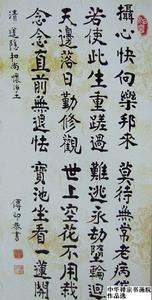 攝心快向樂邦來莫待無常老病催
若使此生重蹉過難逃永劫墜輪迴
天邊落日勤修觀世上空花不用栽
念念直前無退怯寶池坐看一蓮開
清道隱和尚懷淨土
傅印恭書
中华禅宗书画院
作品选